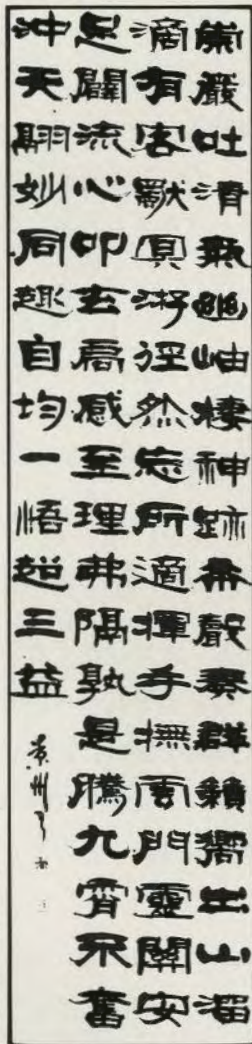 崇巖吐清氣幽岫棲神跡希聲奏群籟響出山溜
滴有客獨冥游徑然忘所適揮手撫雲門靈關安
足闢流心叩玄扃感至理弗隔孰是騰九霄不奮
沖天翮妙同趣自均一悟超三益